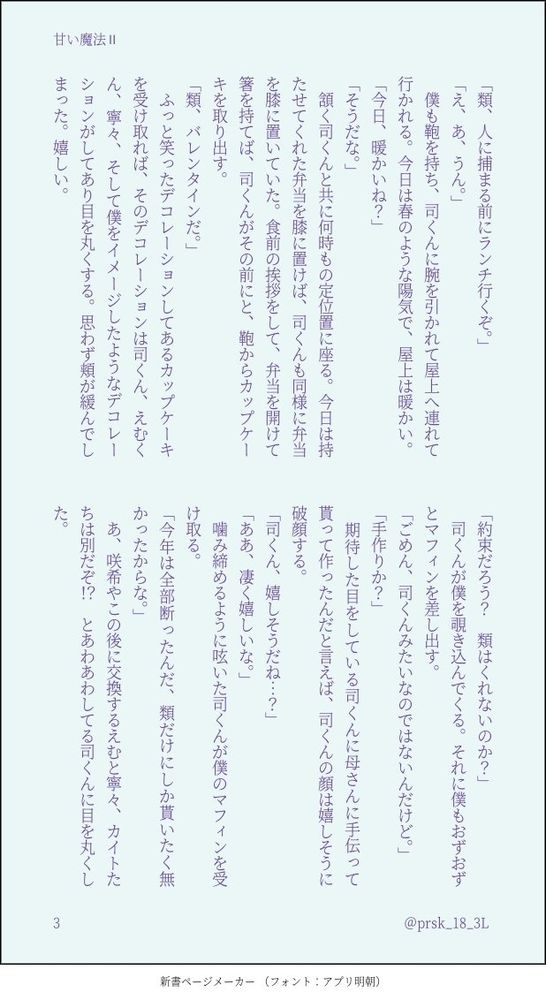 甘い魔法Ⅱ
「類、人に捕まる前にランチ行くぞ。」
「え、あ、うん。」
　僕も鞄を持ち、司くんに腕を引かれて屋上へ連れて
行かれる。今日は春のような陽気で、屋上は暖かい。
「今日、暖かいね？」
「そうだな。」
　頷く司くんと共に何時もの定位置に座る。今日は持
たせてくれた弁当を膝に置けば、司くんも同様に弁当
を膝に置いていた。食前の挨拶をして、弁当を開けて
箸を持てば、司くんがその前にと、鞄からカップケー
キを取り出す。
「類、バレンタインだ。」
　ふっと笑ったデコレーションしてあるカップケーキ
を受け取れば、そのデコレーションは司くん、えむく
ん、寧々、そして僕をイメージしたようなデコレー
ションがしてあり目を丸くする。思わず頬が緩んでし
まった。嬉しい。
「約束だろう？　類はくれないのか？」
　司くんが僕を覗き込んでくる。それに僕もおずおず
とマフィンを差し出す。
「ごめん、司くんみたいなのではないんだけど。」
「手作りか？」
　期待した目をしている司くんに母さんに手伝って
貰って作ったんだと言えば、司くんの顔は嬉しそうに
破顔する。
「司くん、嬉しそうだね…？」
「ああ、凄く嬉しいな。」
　噛み締めるように呟いた司くんが僕のマフィンを受
け取る。
「今年は全部断ったんだ、類だけにしか貰いたく無
かったからな。」
　あ、咲希やこの後に交換するえむと寧々、カイトた
ちは別だぞ!?　とあわあわしてる司くんに目を丸くし
た。
3
@prsk_18_3L
新書ページメーカー （フォント：アプリ明朝）